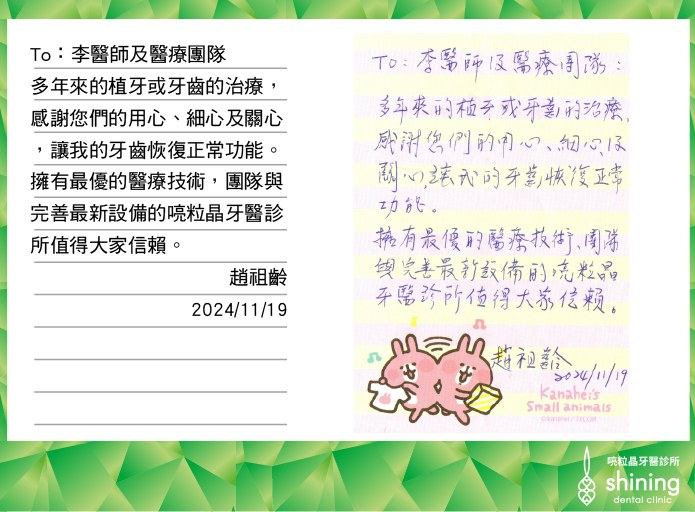 To：李醫師及醫療團隊
多年來的植牙或牙齒的治療，
感謝您們的用心、細心及關心
，讓我的牙齒恢復正常功能。
擁有最優的醫療技術，團隊與
完善最新設備的喨粒晶牙醫診
所值得大家信賴。
趙祖齡
2024/11/19
To: 李醫師及醫療團隊:
多年來的植牙或牙齒的治療,
感謝您們的用心、細心及
關心,讓我的牙齒恢復正常
功能。
擁有最優的醫療技術、團隊
與完善最新設備的喨粒晶
牙醫診所值得大家信賴。
趙祖齡
2024/11/19
Kanahei's
Small animals
喨粒晶牙醫診所
shining
dental clinic